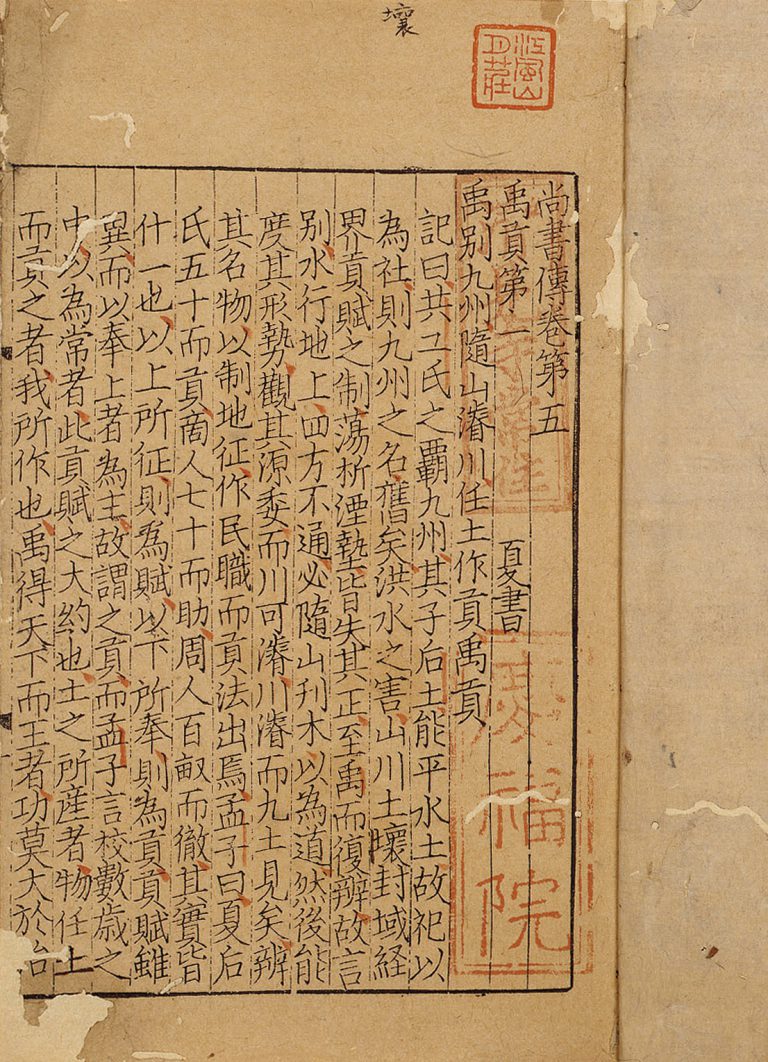 壤
江風山
月莊
尚書傳卷第五
禹貢第一　夏書
禹別九州隨山濬川任土作貢禹貢
記曰共工氏之覇九州其子后土能平水土故祀以
為社則九州之名舊矣洪水之害山川土壤封域経
界貢賦之制蕩析湮墊皆失其正至禹而復辨故言
別水行地上四方不通必隨山刋木以為道然後能
度其形勢觀其源委而川可濬川濬而九土見矣辨
其名物以制地征作民職而貢法出焉孟子曰夏后
氏五十而貢啇人七十而助周人百畝而徹其實皆
什一也以上所征則為賦以下所奉則為貢貢賦雖
異而以奉上者為主故謂之貢而孟子言校數歳之
中以為常者此貢賦之大約也土之所産者物任土
而貢之者我所作也禹得天下而王者功莫大於治
福院